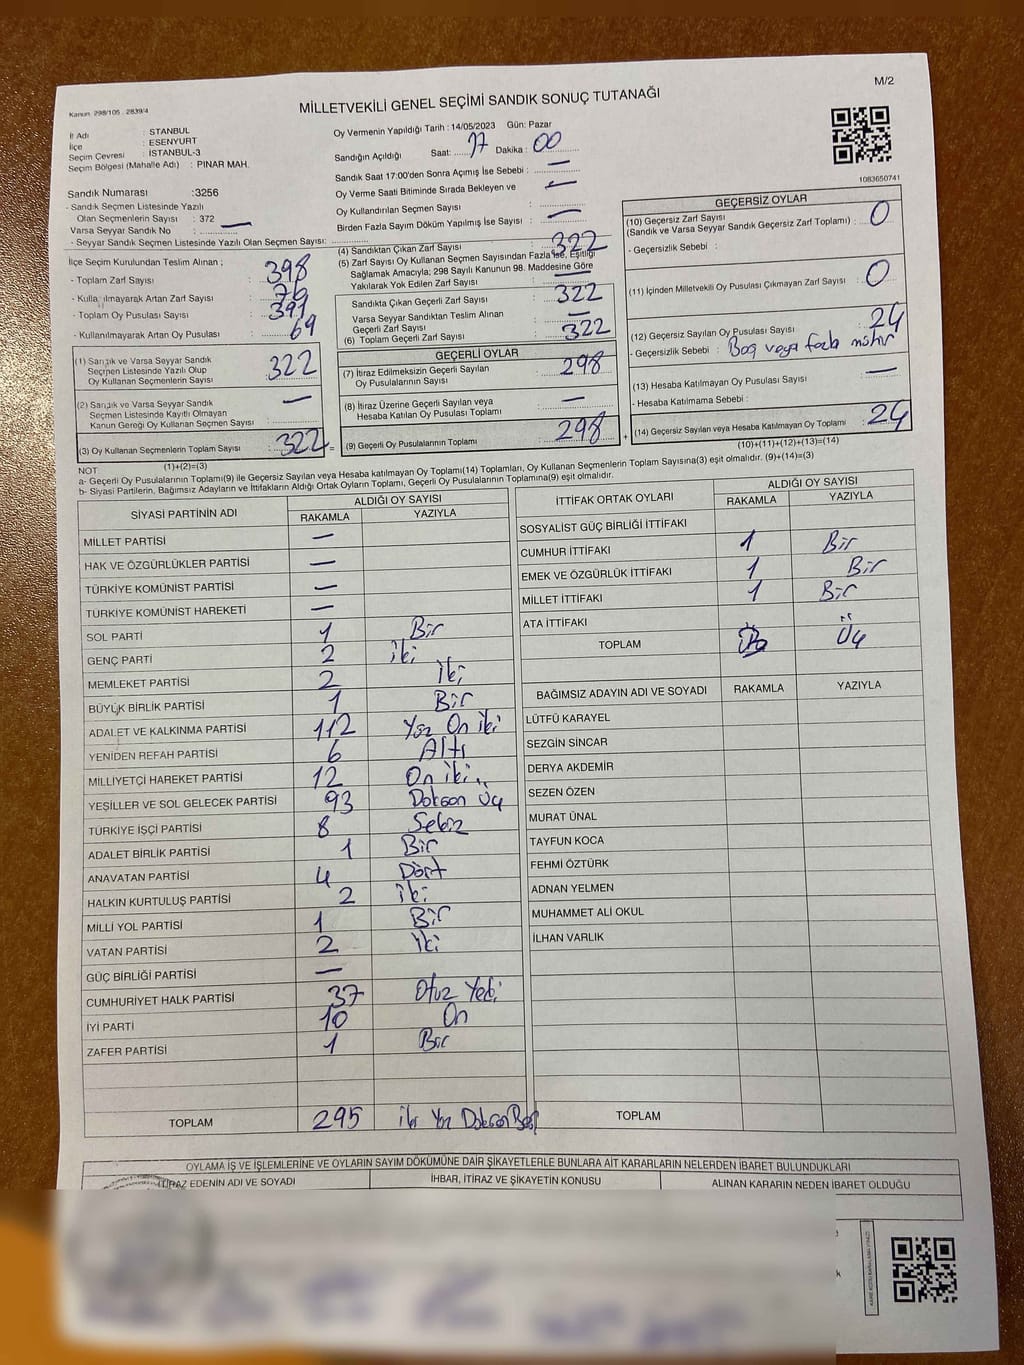 M/2
Kanun: 298/105 . 2839/4
MİLLETVEKİLİ GENEL SEÇİMİ SANDIK SONUÇ TUTANAĞI
İl Adı : STANBUL
İlçe : ESENYURT
Seçim Çevresi : İSTANBUL-3
Seçim Bölgesi (Mahalle Adı) : PINAR MAH.
Sandık Numarası :3256
- Sandık Seçmen Listesinde Yazılı
Olan Seçmenlerin Sayısı : 372
Varsa Seyyar Sandık No : —
- Seyyar Sandık Seçmen Listesinde Yazılı Olan Seçmen Sayısı:
İlçe Seçim Kurulundan Teslim Alınan ;
- Toplam Zarf Sayısı : 398
- Kullanılmayarak Artan Zarf Sayısı : 76
- Toplam Oy Pusulası Sayısı : 391
- Kullanılmayarak Artan Oy Pusulası : 69
(1) Sandık ve Varsa Seyyar Sandık
Seçmen Listesinde Yazılı Olup
Oy Kullanan Seçmenlerin Sayısı : 322
(2) Sandık ve Varsa Seyyar Sandık
Seçmen Listesinde Kayıtlı Olmayan
Kanun Gereği Oy Kullanan Seçmen Sayısı : —
(3) Oy Kullanan Seçmenlerin Toplam Sayısı : 322
(1)+(2)=(3)
Oy Vermenin Yapıldığı Tarih : 14/05/2023 Gün: Pazar
Sandığın Açıldığı Saat: 17 Dakika : 00
Sandık Saat 17:00'den Sonra Açımış İse Sebebi : —
Oy Verme Saati Bitiminde Sırada Bekleyen ve
Oy Kullandırılan Seçmen Sayısı : —
Birden Fazla Sayım Döküm Yapılmış İse Sayısı : —
(4) Sandıktan Çıkan Zarf Sayısı : 322
(5) Zarf Sayısı Oy Kullanan Seçmen Sayısından Fazla İse, Eşitliği
Sağlamak Amacıyla; 298 Sayılı Kanunun 98. Maddesine Göre
Yakılarak Yok Edilen Zarf Sayısı : —
Sandıkta Çıkan Geçerli Zarf Sayısı : 322
Varsa Seyyar Sandıktan Teslim Alınan
Geçerli Zarf Sayısı : —
(6) Toplam Geçerli Zarf Sayısı : 322
GEÇERLİ OYLAR
(7) İtiraz Edilmeksizin Geçerli Sayılan
Oy Pusulalarının Sayısı : 298
(8) İtiraz Üzerine Geçerli Sayılan veya
Hesaba Katılan Oy Pusulası Toplamı : —
(9) Geçerli Oy Pusulalarının Toplamı : 298
1083650741
GEÇERSİZ OYLAR
(10) Geçersiz Zarf Sayısı
(Sandık ve Varsa Seyyar Sandık Geçersiz Zarf Toplamı) : 0
- Geçersizlik Sebebi :
(11) İçinden Milletvekili Oy Pusulası Çıkmayan Zarf Sayısı : 0
(12) Geçersiz Sayılan Oy Pusulası Sayısı : 24
- Geçersizlik Sebebi : Boş veya fazla mühür
(13) Hesaba Katılmayan Oy Pusulası Sayısı : —
- Hesaba Katılmama Sebebi :
(14) Geçersiz Sayılan veya Hesaba Katılmayan Oy Toplamı : 24
(10)+(11)+(12)+(13)=(14)
NOT
a- Geçerli Oy Pusulalarının Toplamı(9) ile Geçersiz Sayılan veya Hesaba katılmayan Oy Toplamı(14) Toplamları, Oy Kullanan Seçmenlerin Toplam Sayısına(3) eşit olmalıdır. (9)+(14)=(3)
b- Siyasi Partilerin, Bağımsız Adayların ve İttifakların Aldığı Ortak Oyların Toplamı, Geçerli Oy Pusulalarının Toplamına(9) eşit olmalıdır.
SİYASİ PARTİNİN ADI ALDIĞI OY SAYISI
RAKAMLA YAZIYLA
MİLLET PARTİSİ —
HAK VE ÖZGÜRLÜKLER PARTİSİ —
TÜRKİYE KOMÜNİST PARTİSİ —
TÜRKİYE KOMÜNİST HAREKETİ —
SOL PARTİ 1 Bir
GENÇ PARTİ 2 iki
MEMLEKET PARTİSİ 2 iki
BÜYÜK BİRLİK PARTİSİ 1 Bir
ADALET VE KALKINMA PARTİSİ 112 Yüz On iki
YENİDEN REFAH PARTİSİ 6 Altı
MİLLİYETÇİ HAREKET PARTİSİ 12 On iki
YEŞİLLER VE SOL GELECEK PARTİSİ 93 Doksan Üç
TÜRKİYE İŞÇİ PARTİSİ 8 Sekiz
ADALET BİRLİK PARTİSİ 1 Bir
ANAVATAN PARTİSİ 4 Dört
HALKIN KURTULUŞ PARTİSİ 2 iki
MİLLİ YOL PARTİSİ 1 Bir
VATAN PARTİSİ 2 iki
GÜÇ BİRLİĞİ PARTİSİ —
CUMHURİYET HALK PARTİSİ 37 Otuz Yedi
İYİ PARTİ 10 On
ZAFER PARTİSİ 1 Bir
TOPLAM 295 iki Yüz Doksan Beş
İTTİFAK ORTAK OYLARI ALDIĞI OY SAYISI
RAKAMLA YAZIYLA
SOSYALİST GÜÇ BİRLİĞİ İTTİFAKI
CUMHUR İTTİFAKI 1 Bir
EMEK VE ÖZGÜRLÜK İTTİFAKI 1 Bir
MİLLET İTTİFAKI 1 Bir
ATA İTTİFAKI
TOPLAM Üç
BAĞIMSIZ ADAYIN ADI VE SOYADI RAKAMLA YAZIYLA
LÜTFÜ KARAYEL
SEZGİN SİNCAR
DERYA AKDEMİR
SEZEN ÖZEN
MURAT ÜNAL
TAYFUN KOCA
FEHMİ ÖZTÜRK
ADNAN YELMEN
MUHAMMET ALİ OKUL
İLHAN VARLIK
TOPLAM
OYLAMA İŞ VE İŞLEMLERİNE VE OYLARIN SAYIM DÖKÜMÜNE DAİR ŞİKAYETLERLE BUNLARA AİT KARARLARIN NELERDEN İBARET BULUNDUKLARI
İTİRAZ EDENİN ADI VE SOYADI İHBAR, İTİRAZ VE ŞİKAYETİN KONUSU ALINAN KARARIN NEDEN İBARET OLDUĞU